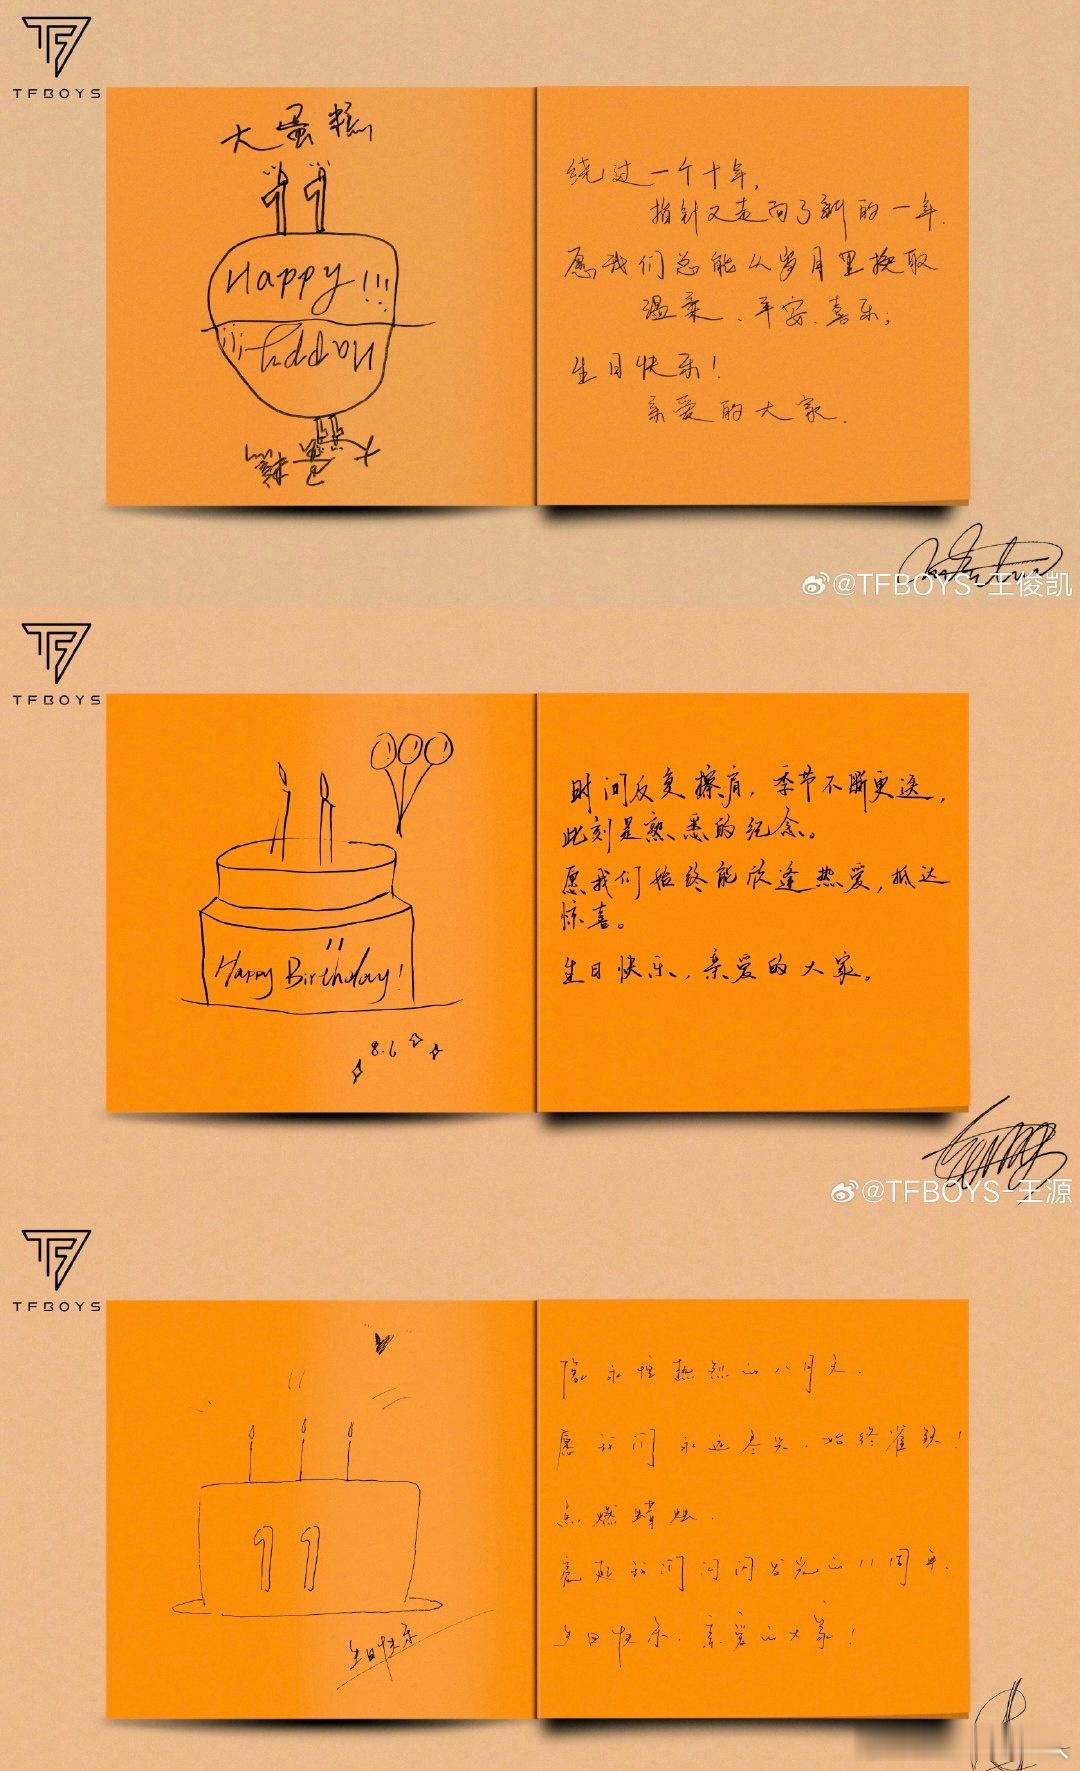 TFBOYS
大蛋糕
11
Happy!!!
Happy!!!
大蛋糕
绕过一个十年,
指针又走向了新的一年.
愿我们总能从岁月里换取
温柔、平安、喜乐;
生日快乐!
亲爱的大家.
@TFBOYS-王俊凯
TFBOYS
11
Happy Birthday!
8.6
时间反复擦肩,季节不断更迭,
此刻是熟悉的纪念。
愿我们始终能欣逢热爱,抵达
惊喜。
生日快乐,亲爱的大家。
@TFBOYS-王源
TFBOYS
11
生日快乐
永恒热烈的八月天.
愿我们永远尽兴.始终雀跃!
点燃蜡烛.
亮起我们闪闪发光的11周年.
生日快乐.亲爱的大家!